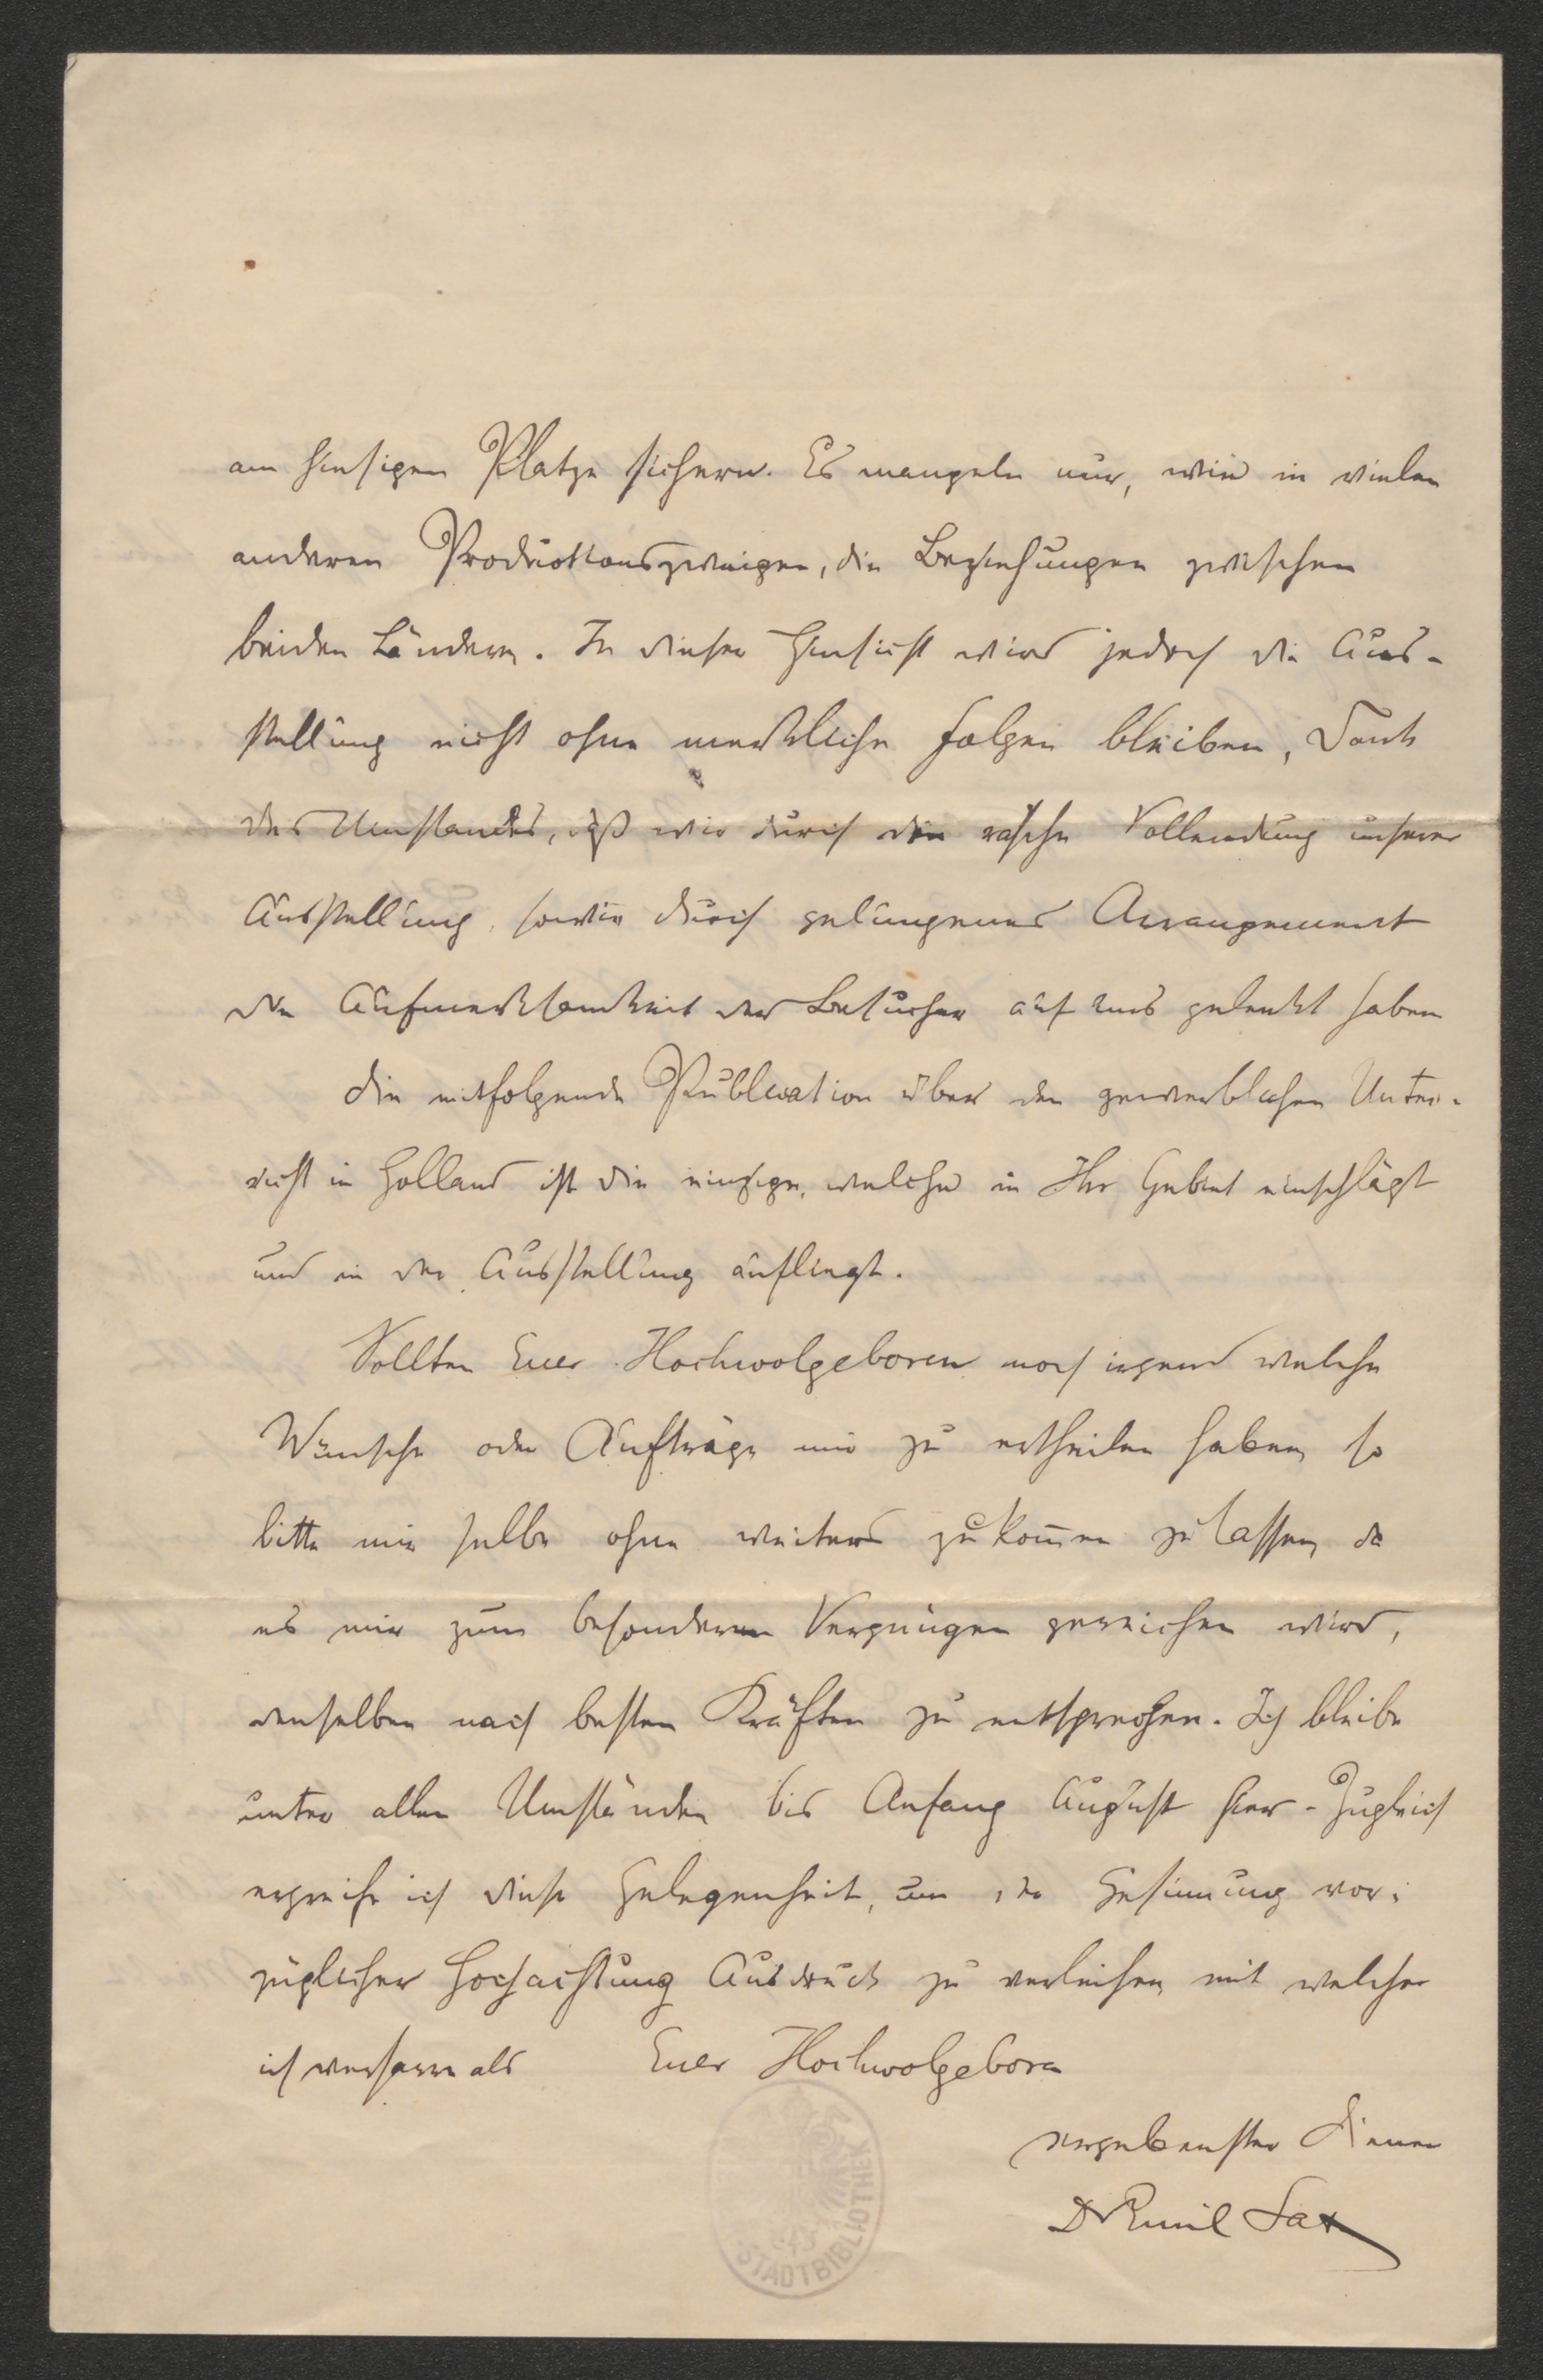 am hiesigen Platze sichern. Es mangeln nur, wie in vielen
anderen Productionszweigen, die Beziehungen zwischen
beiden Ländern. In dieser Hinsicht wird jedoch die Aus-
stellung nicht ohne merkliche Folgen bleiben, Dank
des Umstandes, daß wir durch die rasche Vollendung unserer
Ausstellung, sowie durch gelungenes Arrangement
die Aufmerksamkeit der Besucher auf uns gelenkt haben
Die mitfolgende Publication über den gewerblichen Unter-
richt in Holland ist die einzige, welche in Ihr Gebiet einschlägt
und in der Ausstellung aufliegt.
Sollten Euer Hochwolgeboren noch irgend welche
Wünsche oder Aufträge mir zu ertheilen haben, so
bitte mir selbe ohne weiters zukom̄en zu lassen, da
es mir zum besonderen Vergnügen gereichen wird,
denselben nach besten Kräften zu entsprechen. Ich bleibe
unter allen Umständen bis Anfang August hier. Zugleich
ergreife ich diese Gelegenheit, um der Gesinnung vor-
züglicher Hochachtung Ausdruck zu verleihen, mit welcher
ich verharre als Euer Hochwolgeborn
ergebenster Diener
Dr Emil Sax
STADTBIBLIOTHEK